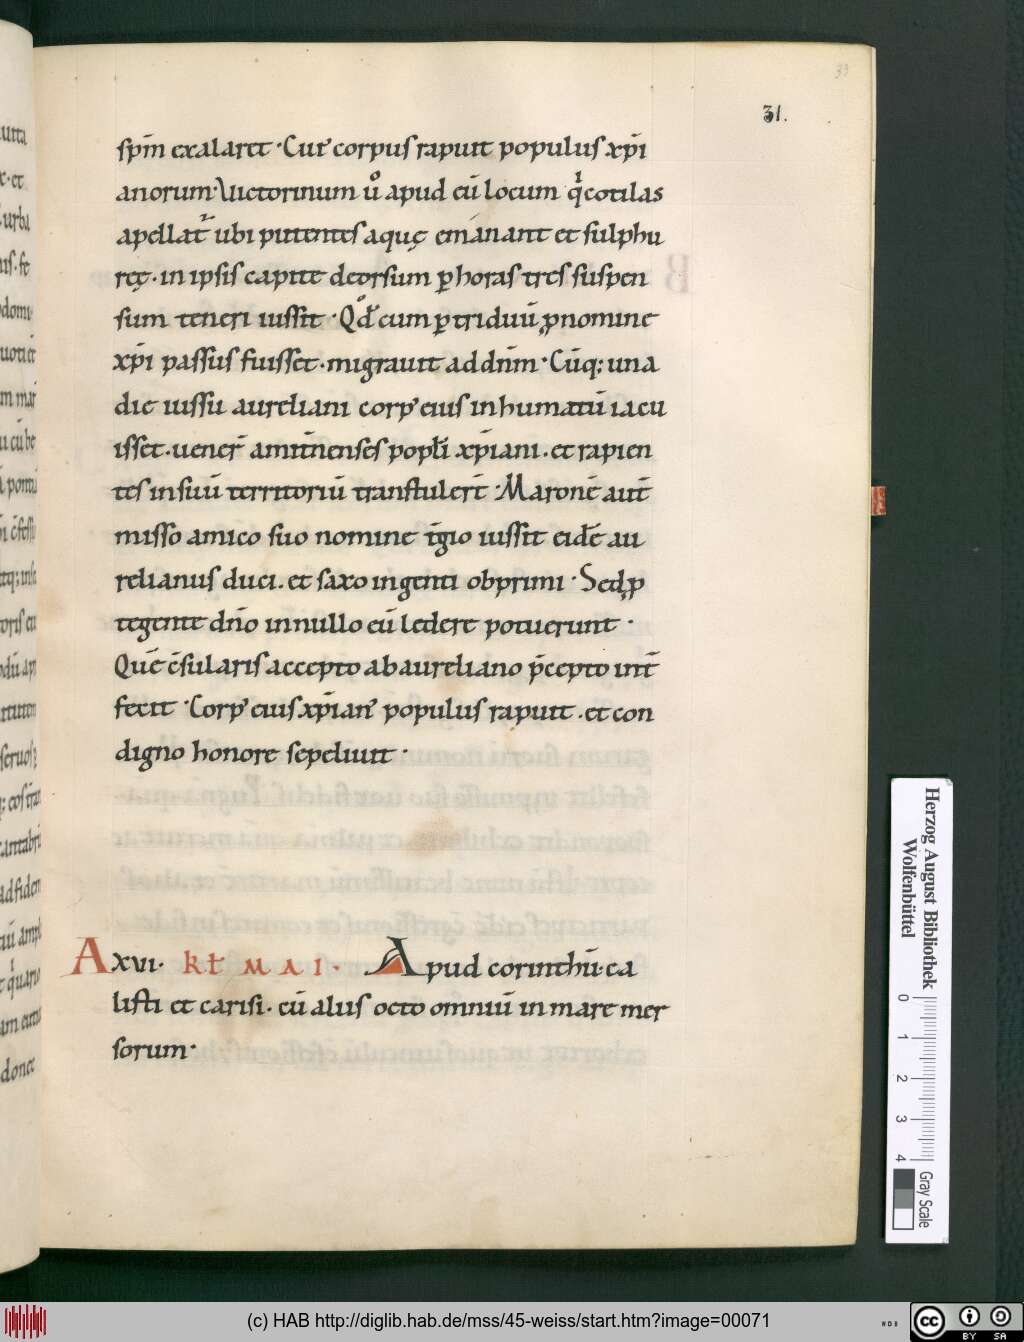 31.
spm̄ exalaret · Cuı᷒ corpus rapuit populus xp̄i
anorum · Victorinum ů apud eū locum q̇ cotilas
apellat᷒ ubi putentes aquę emanant et sulphu
ręę · in ipsis capite deorsum ꝑ horas tres suspen
sum teneri iussit · Qd̊ cum ꝑ triduū ꝓ nomine
xp̄i passus fuisset · migrauit ad dn̄m · Cūq; una
die iussu aureliani corp᷒ eius inhumatū iacu
isset · uener̄ amitn̄enses popl̄i xp̄iani · et rapien
tes in suū territoriū transtuler̄t · Maronē aūt
misso amico suo nomine t̄gio iussit eidē au
relianus duci · et saxo ingenti obprimi · Sed ꝓ
tegente dn̄o in nullo eū ledere potuerunt ·
Quē c̄sularis accepto ab aureliano p̄cepto int̄
fecit · Corp᷒ eius xp̄ian᷒ populus rapuit · et con
digno honore sepeliuit ·
A xvi · kł MAI · Apud corinthū · ca
listi et carisi · cū aliis octo omniū in mare mer
sorum ·
Herzog August Bibliothek
Wolfenbüttel
0 1 2 3 4
Gray Scale
(c) HAB http://diglib.hab.de/mss/45-weiss/start.htm?image=00071
WDB
cc BY SA